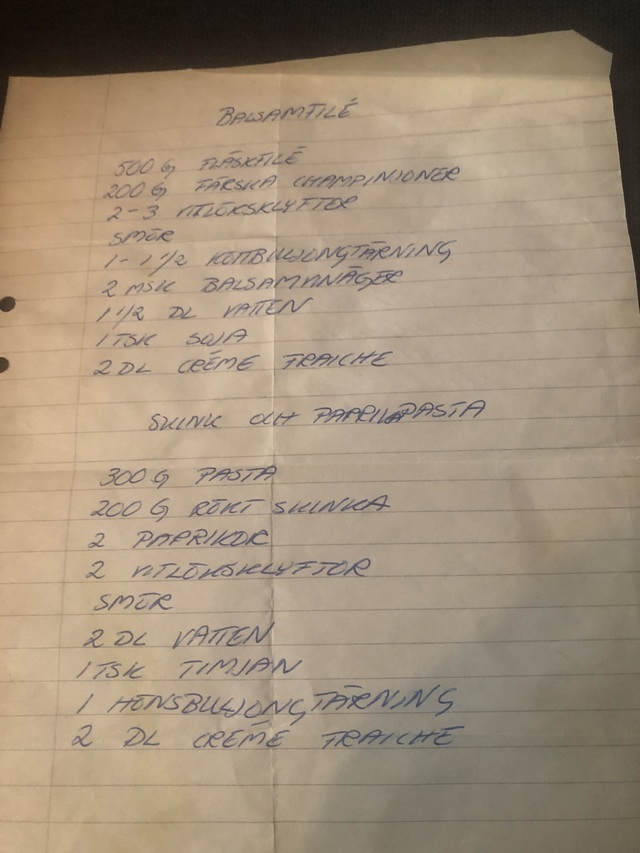 BALSAMFILÉ
500 G FLÄSKFILÉ
200 G FÄRSKA CHAMPINJONER
2-3 VITLÖKSKLYFTOR
SMÖR
1-1 1/2 KÖTTBULJONGTÄRNING
2 MSK BALSAMVINÄGER
1 1/2 DL VATTEN
1 TSK SOJA
2 DL CRÉME FRAICHE
SKINK OCH PAPRIKAPASTA
300 G PASTA
200 G RÖKT SKINKA
2 PAPRIKOR
2 VITLÖKSKLYFTOR
SMÖR
2 DL VATTEN
1 TSK TIMJAN
1 HÖNSBULJONGTÄRNING
2 DL CRÉME FRAICHE